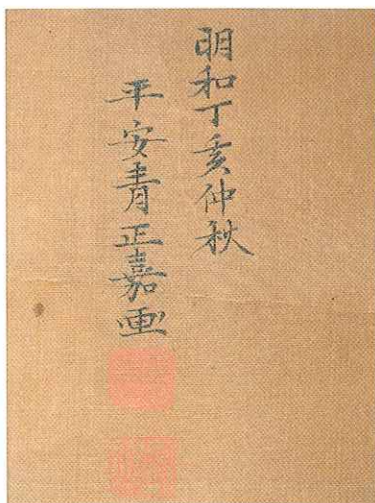 明和丁亥仲秋
平安青正嘉画